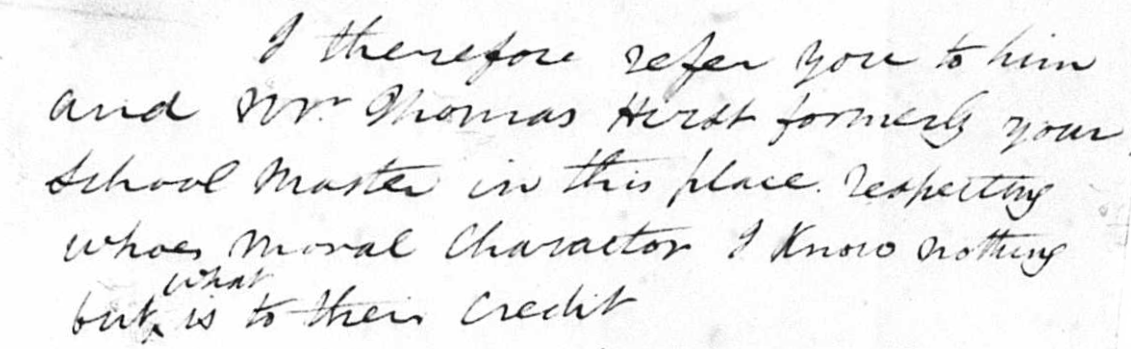 I therefore refer you to him
and Mr. Thomas Hirst formerly your
School Master in this place. respecting
whoes moral Character I Know nothing
but what is to their Credit